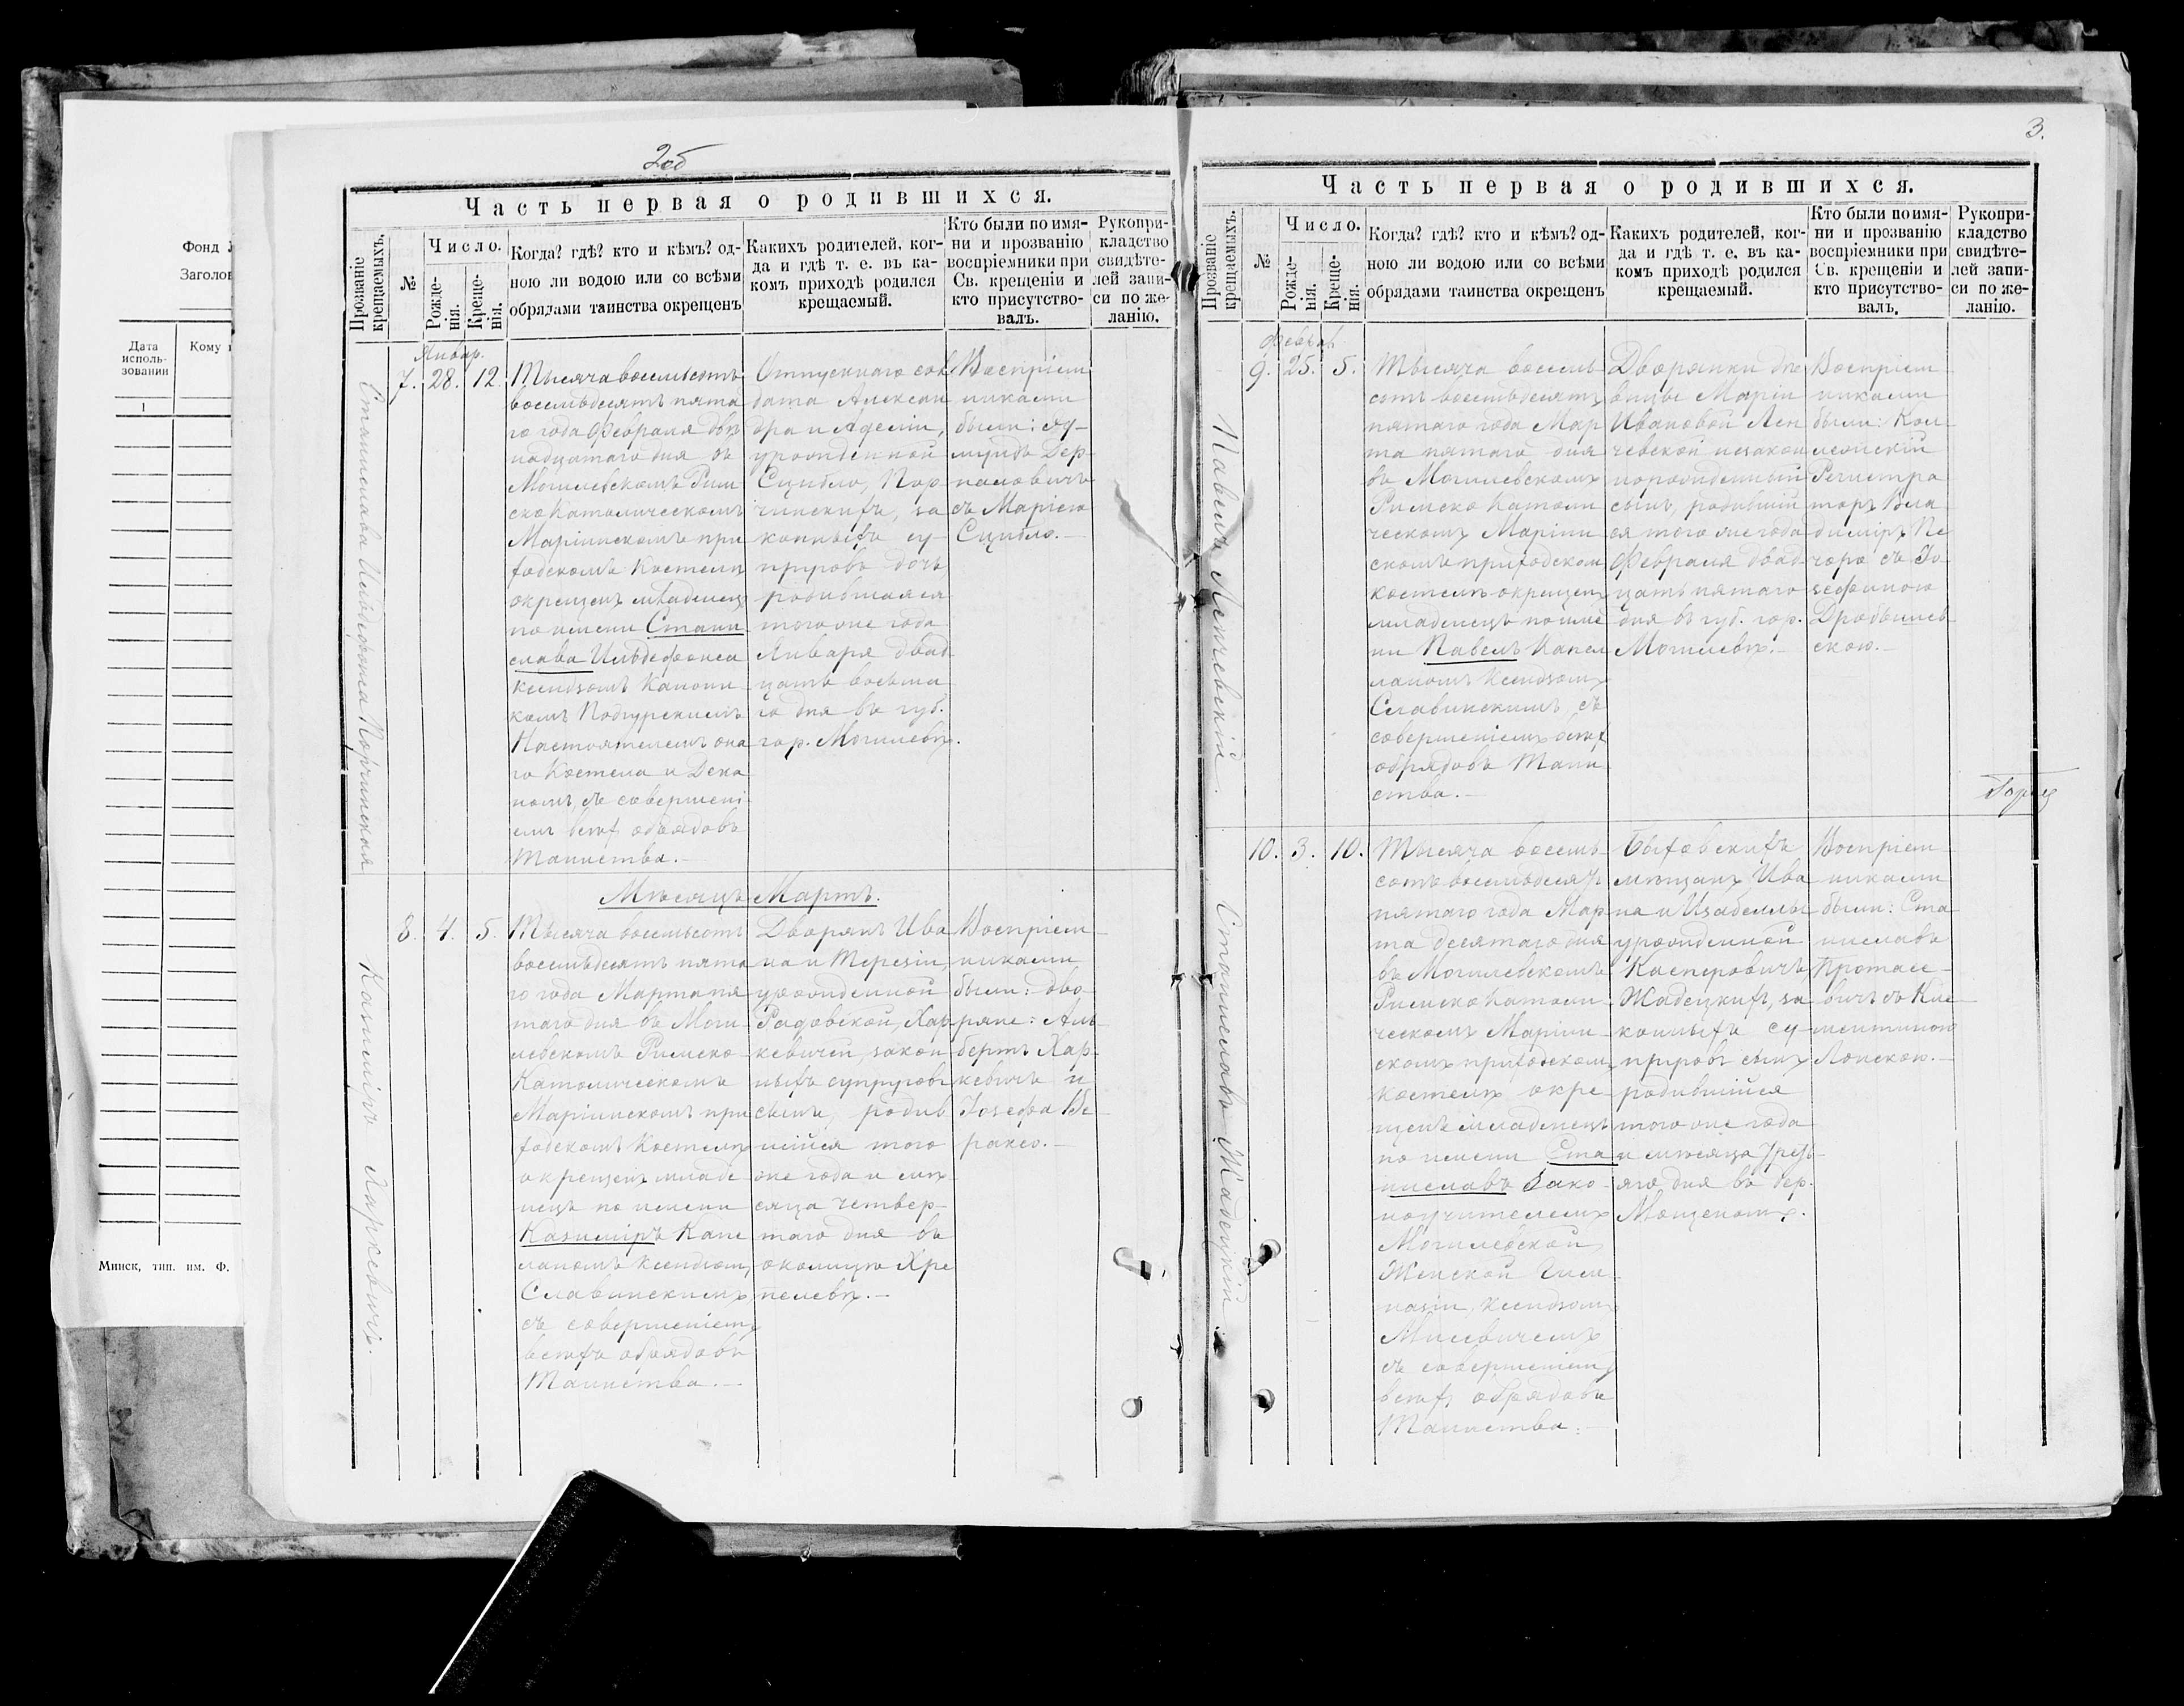 Фонд
Заголов
Дата
исполь-
зования
Кому
1
Минск, тип. им. Ф.
2об
Часть первая о родившихся.
Прозваніе крещаемыхъ.
№
Число.
Рожде-
нія.
Креще-
нія.
Когда? гдѣ? кто и кѣмъ? од-
ною ли водою или со всѣми
обрядами таинства окрещенъ
Какихъ родителей, ког-
да и гдѣ т. е. въ ка-
комъ приходѣ родился
крещаемый.
Кто были по имя-
ни и прозванію
воспріемники при
Св. крещеніи и
кто присутство-
валъ.
Рукопри-
кладство
свидѣте-
лей запи-
си по же-
ланію.
Станислава Ильдефонса Порчинская
Январ.
7. 28. 12.
Тысяча восемьсотъ
восемьдесятъ пята
го года Февраля двѣ
надцатаго дня въ
Могилевскомъ Рим
скокатолическомъ
Маріинскомъ при
ходскомъ Костелѣ
окрещенъ младенецъ
по имени Стани
слава Ильдефонса
ксендзомъ Канони
комъ Подгурскимъ
Настоятелемъ она
го Костела и Дека
номъ, съ совершені
емъ всѣхъ обрядовъ
Таинства.-
Отпускнаго сол
дата Алексан
дра и Аделіи,
урожденной
Сцибло, Пор
чинскихъ, за
конныхъ су-
пруговъ дочь
родившаяся
того же года
Января двад
цать восьма
го дня въ губ.
гор. Могилевѣ.
Воспріем
никами
были: Эд-
мундъ Дер-
наловичъ
съ Маріею
Сцибло.-
Мѣсяцъ Мартъ.
Казиміръ Харкевичъ.
8. 4. 5.
Тысяча восемьсотъ
восемьдесятъ пята
го года Марта пя
таго дня въ Моги-
левскомъ Римско
Католическомъ
Маріинскомъ при
ходскомъ Костелѣ
окрещенъ младе
нецъ по имени
Казиміръ Капе
ланомъ ксендзомъ
Славинскимъ,
съ совершеніемъ
всѣхъ обрядовъ
Таинства.-
Дворянъ Ива
на и Терезіи,
урожденной
Радовской, Хар
кевичей, закон
ныхъ супруговъ
сынъ, родив
шійся того
же года и мѣ
сяца четвер-
таго дня въ
околицѣ Хре
пелевѣ.-
Воспріем-
никами
были: дво-
ряне: Аль-
бертъ Хар-
кевичъ и
Іозефа Ве
рако.-
3.
Часть первая о родившихся.
Прозваніе крещаемыхъ.
№
Число.
Рожде-
нія.
Креще-
нія.
Когда? гдѣ? кто и кѣмъ? од-
ною ли водою или со всѣми
обрядами таинства окрещенъ
Какихъ родителей, ког-
да и гдѣ т. е. въ ка-
комъ приходѣ родился
крещаемый.
Кто были по имя-
ни и прозванію
воспріемники при
Св. крещеніи и
кто присутство-
валъ.
Рукопри-
кладство
свидѣте-
лей запи-
си по же-
ланію.
Павелъ Ленчевскій.
Феврал
9. 25. 5.
Тысяча восемь
сотъ восемьдесятъ
пятаго года Мар
та пятаго дня
въ Могилевскомъ
Римско Католи
ческомъ Маріин
скомъ приходском
костелѣ окрещенъ
младенецъ по име
ни Павелъ Капел
ланомъ ксендзомъ
Славинскимъ, съ
совершеніемъ всѣхъ
обрядовъ Таин
ства.-
Дворянки дѣ
вицы Маріи
Ивановой Лен
чевской незакон
норожденный
сынъ, родившій
ся того же года
Февраля двад-
цать пятаго
дня въ губ. гор.
Могилевѣ.-
Воспріем
никами
были: Кол
лежскій
Регистра
торъ Вла
диміръ Пе
чора съ Іо
зефиною
Дробышев
скою.-
Станиславъ Жадецкій
10. 3. 10.
Тысяча восемь
сотъ восемьдесятъ
пятаго года Мар
та десятаго дня
въ Могилевскомъ
Римско Католи
ческомъ Маріин
скомъ приходском
костелѣ окре-
щенъ младенецъ
по имени Ста
ниславъ Зако-
ноучителемъ
Могилевской
Женской Гим
назіи, ксендзомъ
Мисевичемъ
съ совершеніемъ
всѣхъ обрядовъ
Таинства.-
Быховскихъ
мѣщанъ Ива
на и Изабеллы
урожденной
Касперовичъ,
Жадецкихъ, за
конныхъ су-
пруговъ сынъ
родившійся
того же года
и мѣсяца треть
яго дня въ дер.
Воспріем
никами
были: Ста
ниславъ
Протасе-
вичъ съ Кле
ментиною
Лонскою.-